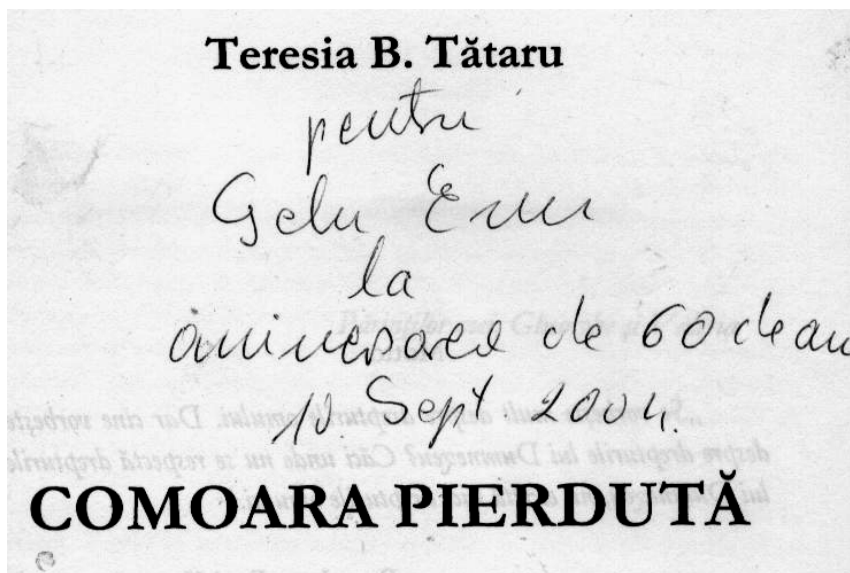 Teresia B. Tătaru
pentru
Gelu
la
aniversarea de 60 de an
10 Sept. 2004.
COMOARA PIERDUTĂ